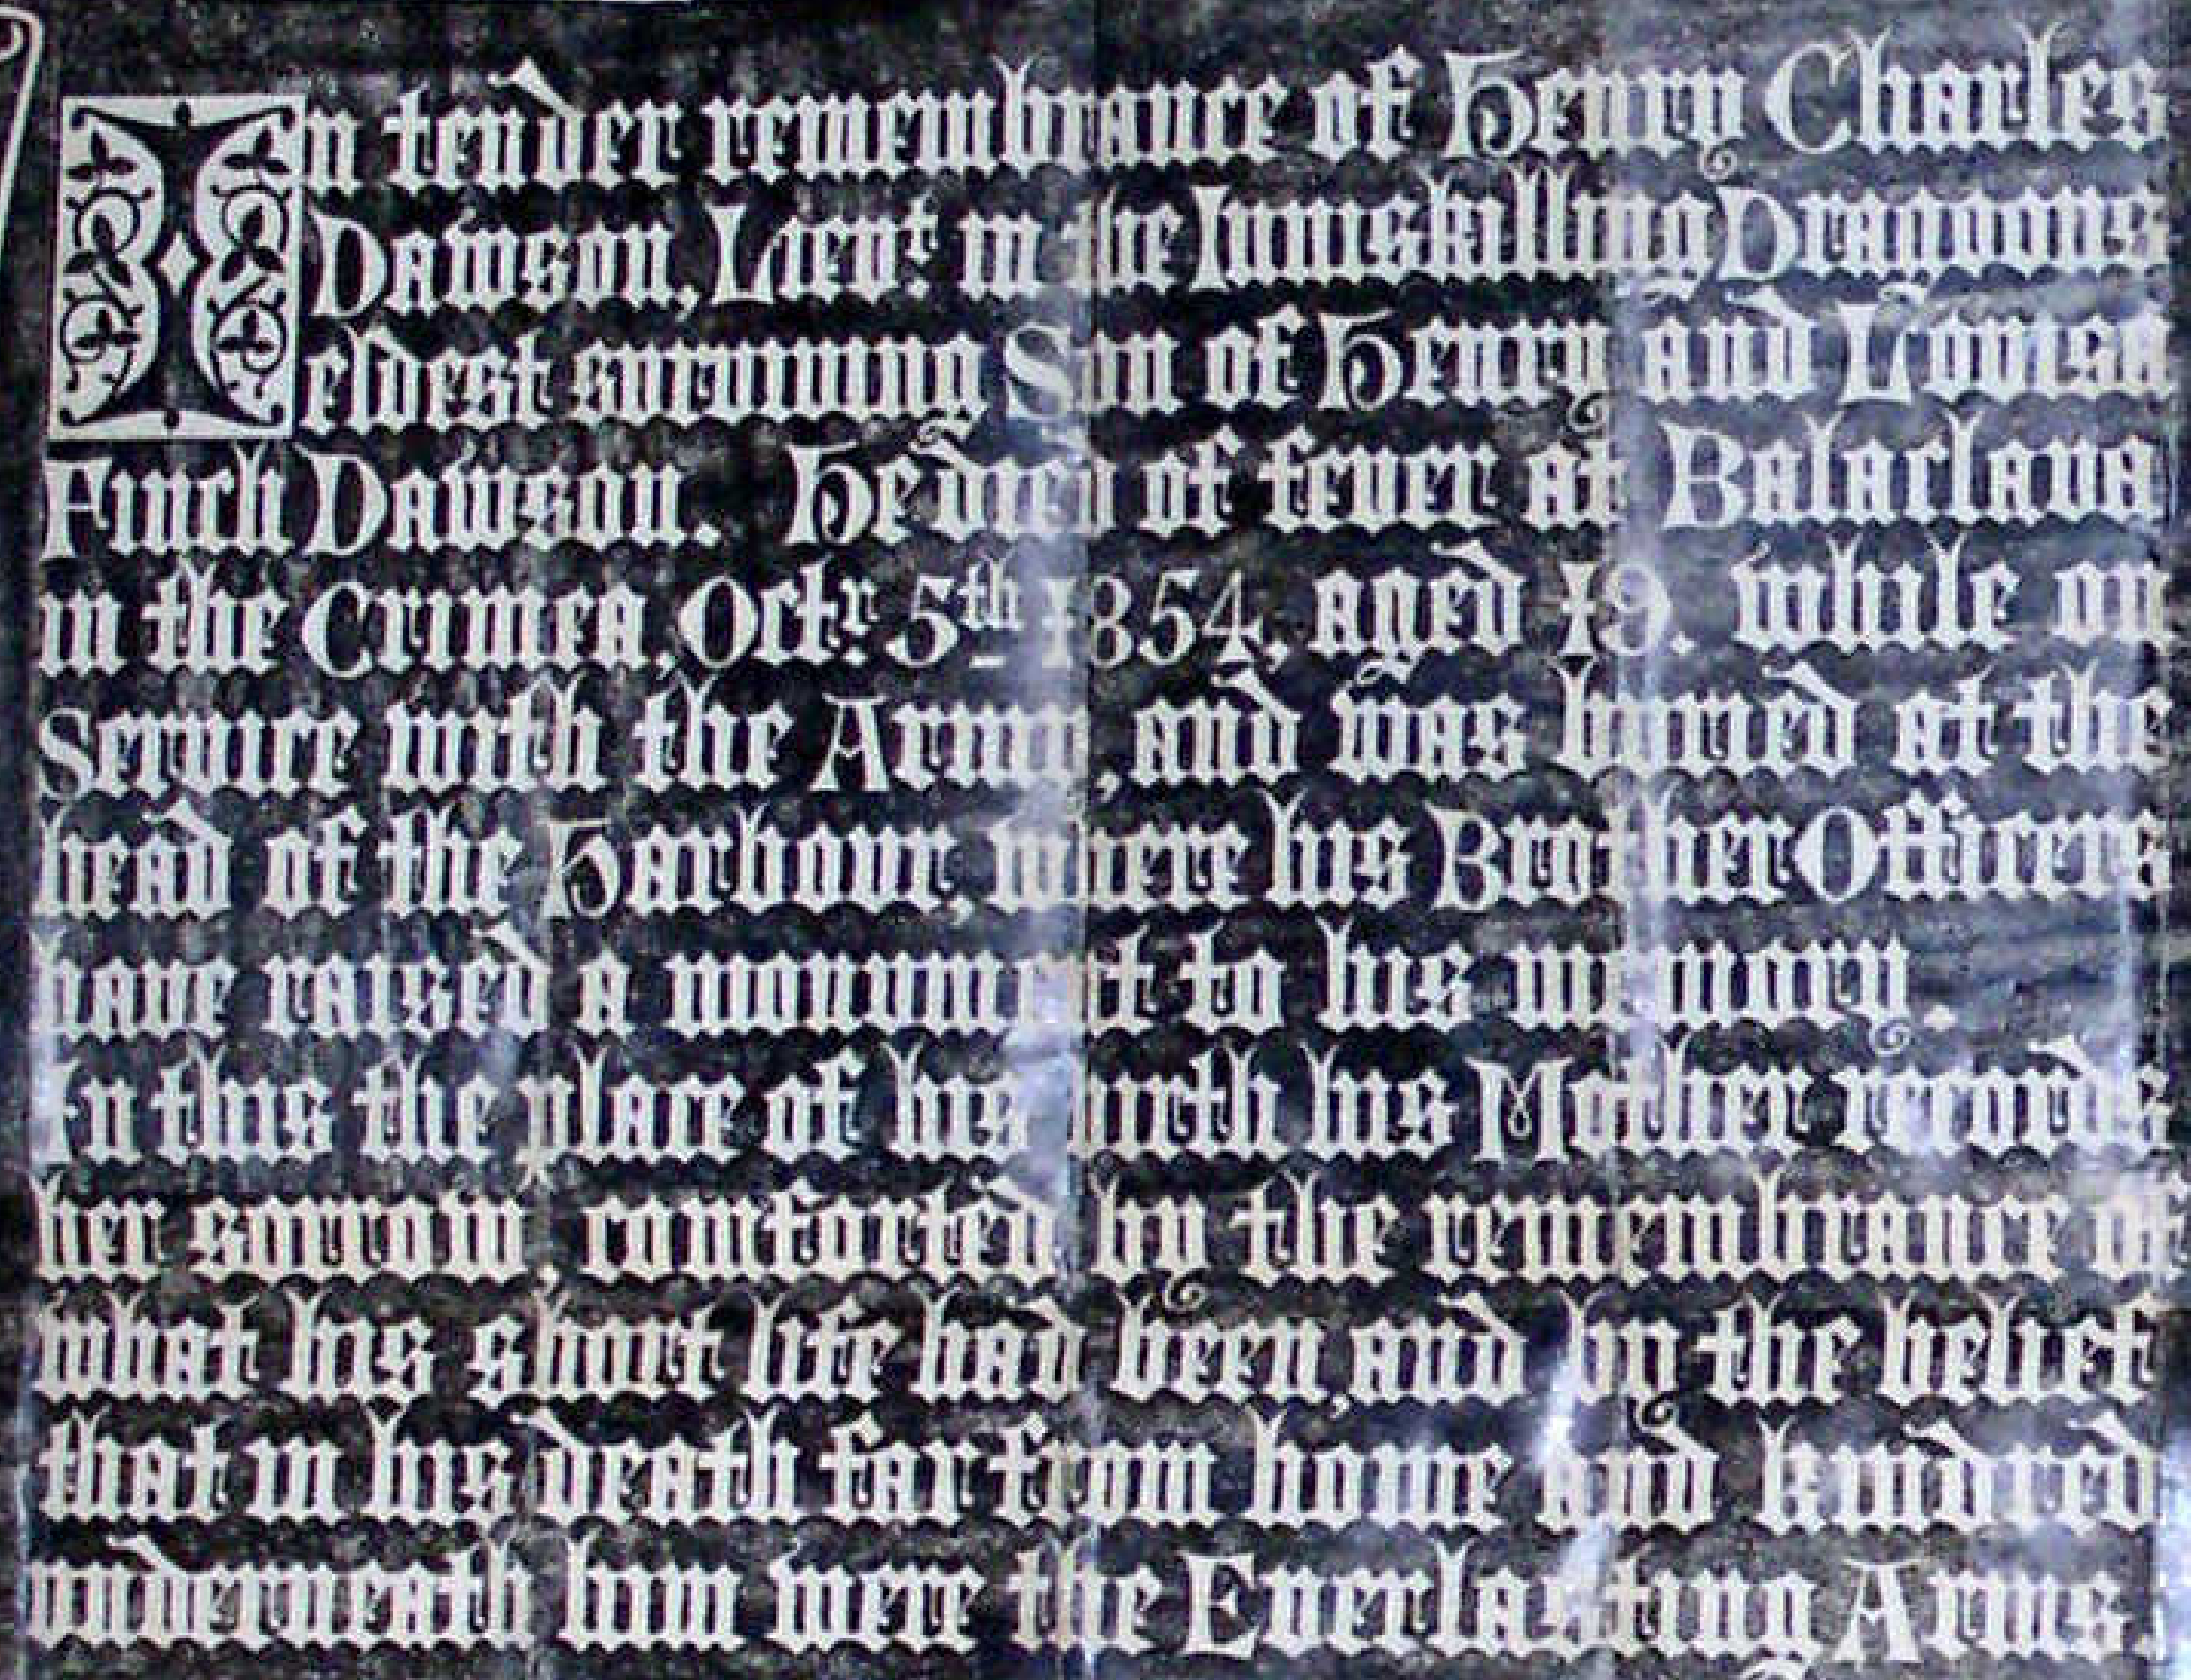 In tender remembrance of Henry Charles
Dawson, Lieut. in the Inniskilling Dragoons
eldest surviving Son of Henry and Louisa
Finch Dawson. He died of fever at Balaclava
in the Crimea, Octr. 5th 1854, aged 19. while on
Service with the Army, and was buried at the
head of the Harbour, where his Brother Officers
have raised a monument to his memory.
In this the place of his birth his Mother records
her sorrow, comforted by the remembrance of
what his short life had been, and by the belief
that in his death far from home and kindred
underneath him were the Everlasting Arms.